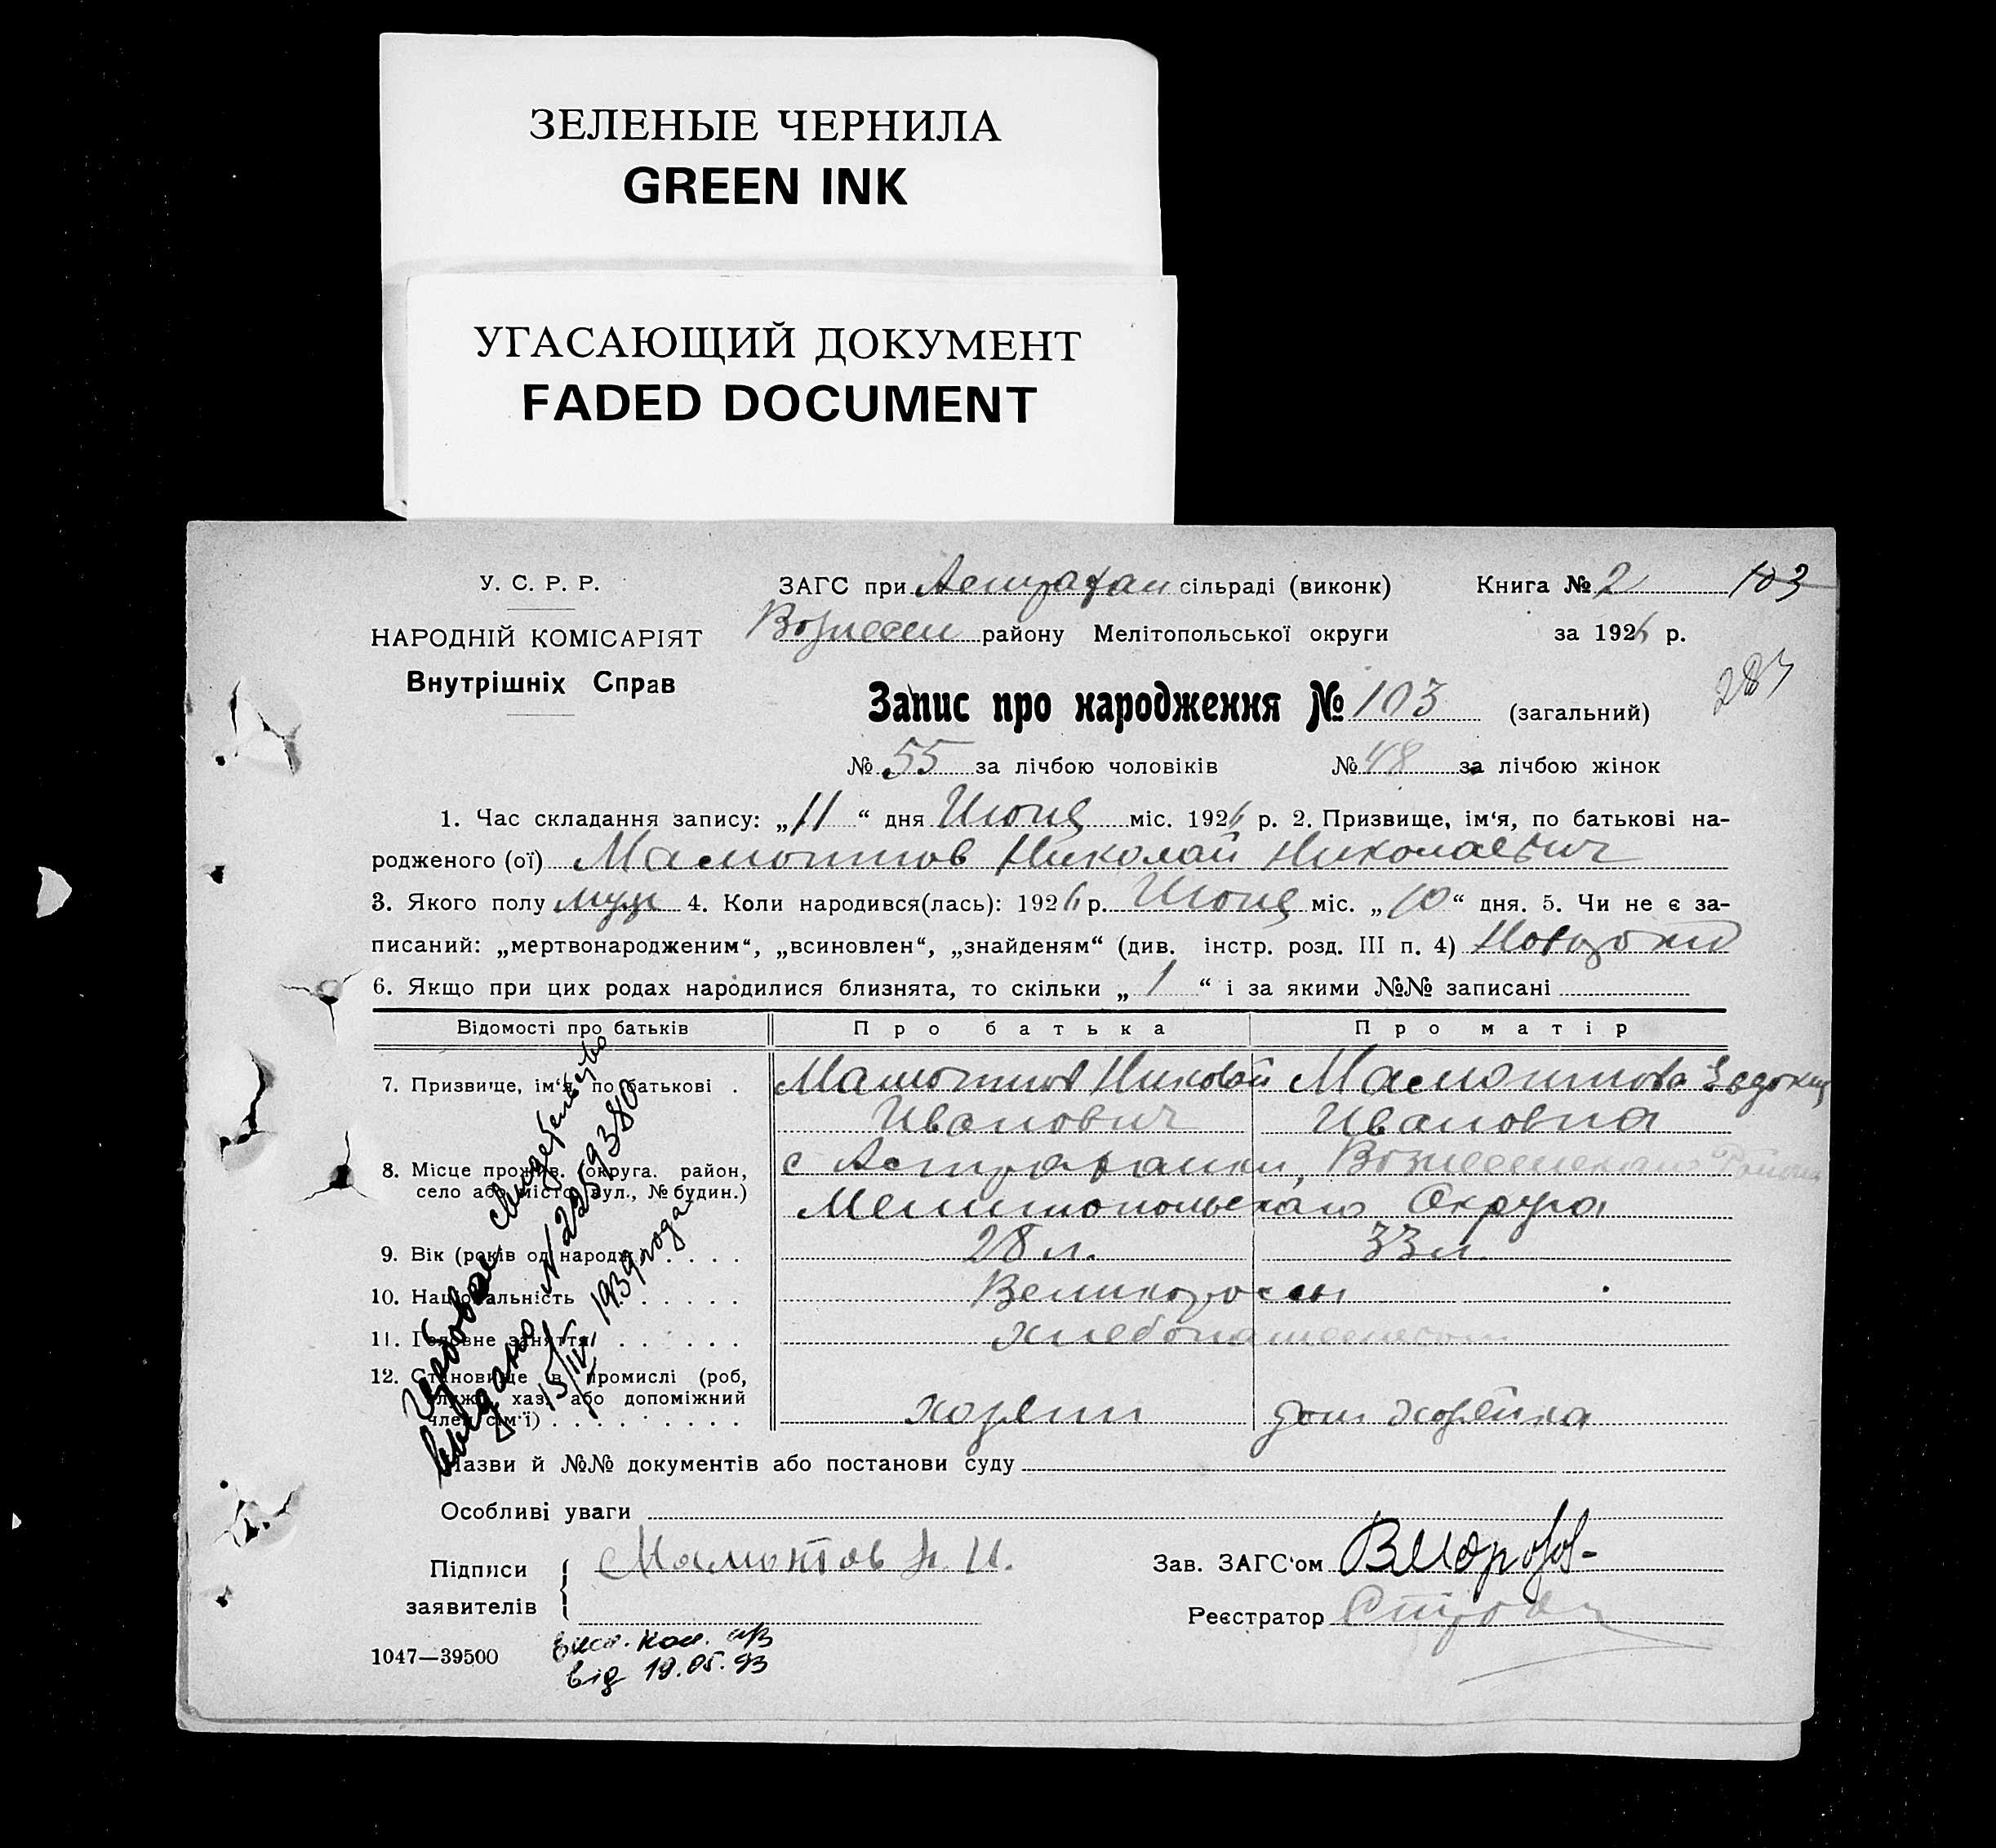 ЗЕЛЕНЫЕ ЧЕРНИЛА
GREEN INK
УГАСАЮЩИЙ ДОКУМЕНТ
FADED DOCUMENT
У. С. Р. Р.
НАРОДНІЙ КОМІСАРІЯТ
Внутрішніх Справ
ЗАГС при Астрахан сільраді (виконк) Книга № 2 103
Вознесен району Мелітопольської округи за 1926 р.
287
Запис про народження № 103 (загальний)
№ 55 за лічбою чоловіків № 48 за лічбою жінок
1. Час складання запису: „11“ дня Июня міс. 1926 р. 2. Призвище, ім‘я, по батькові на-
родженого (ої) Мамонтов Николай Николаевич
3. Якого полу муж 4. Коли народився(лась): 1926 р. Июня міс. „10“ дня. 5. Чи не є за-
писаний: „мертвонародженим“, „всиновлен“, „знайденям“ (див. інстр. розд. III п. 4)
6. Якщо при цих родах народилися близнята, то скільки „1“ і за якими №№ записані
Відомості про батьків Про батька Про матір
7. Призвище, ім‘я, по батькові . Мамонтов Николай Мамонтова Евдокия
Иванович Ивановна
8. Місце прожив. (округа. район, село або місто, вул., № будин.) с Астраханки, Вознесенскаго Района
Мелитопольскаго Округа
9. Вік (років од народж. . . . . 28 л. 33 л.
10. Національність . . . . . Великороссы
11. Головне заняття . . . . . хлебопашеством
12. Становище в промислі (роб, служ, хаз. або допоміжний член сім‘ї) . . . . . . . . . хозяин дом хозяйка
Свидетельство
выдано № 2259380
15/IV 1939 года
Назви й №№ документів або постанови суду
Особливі уваги
Підписи заявителів Мамонтов Н. И.
Зав. ЗАГС‘ом
Реєстратор
1047—39500
від 19.05.93